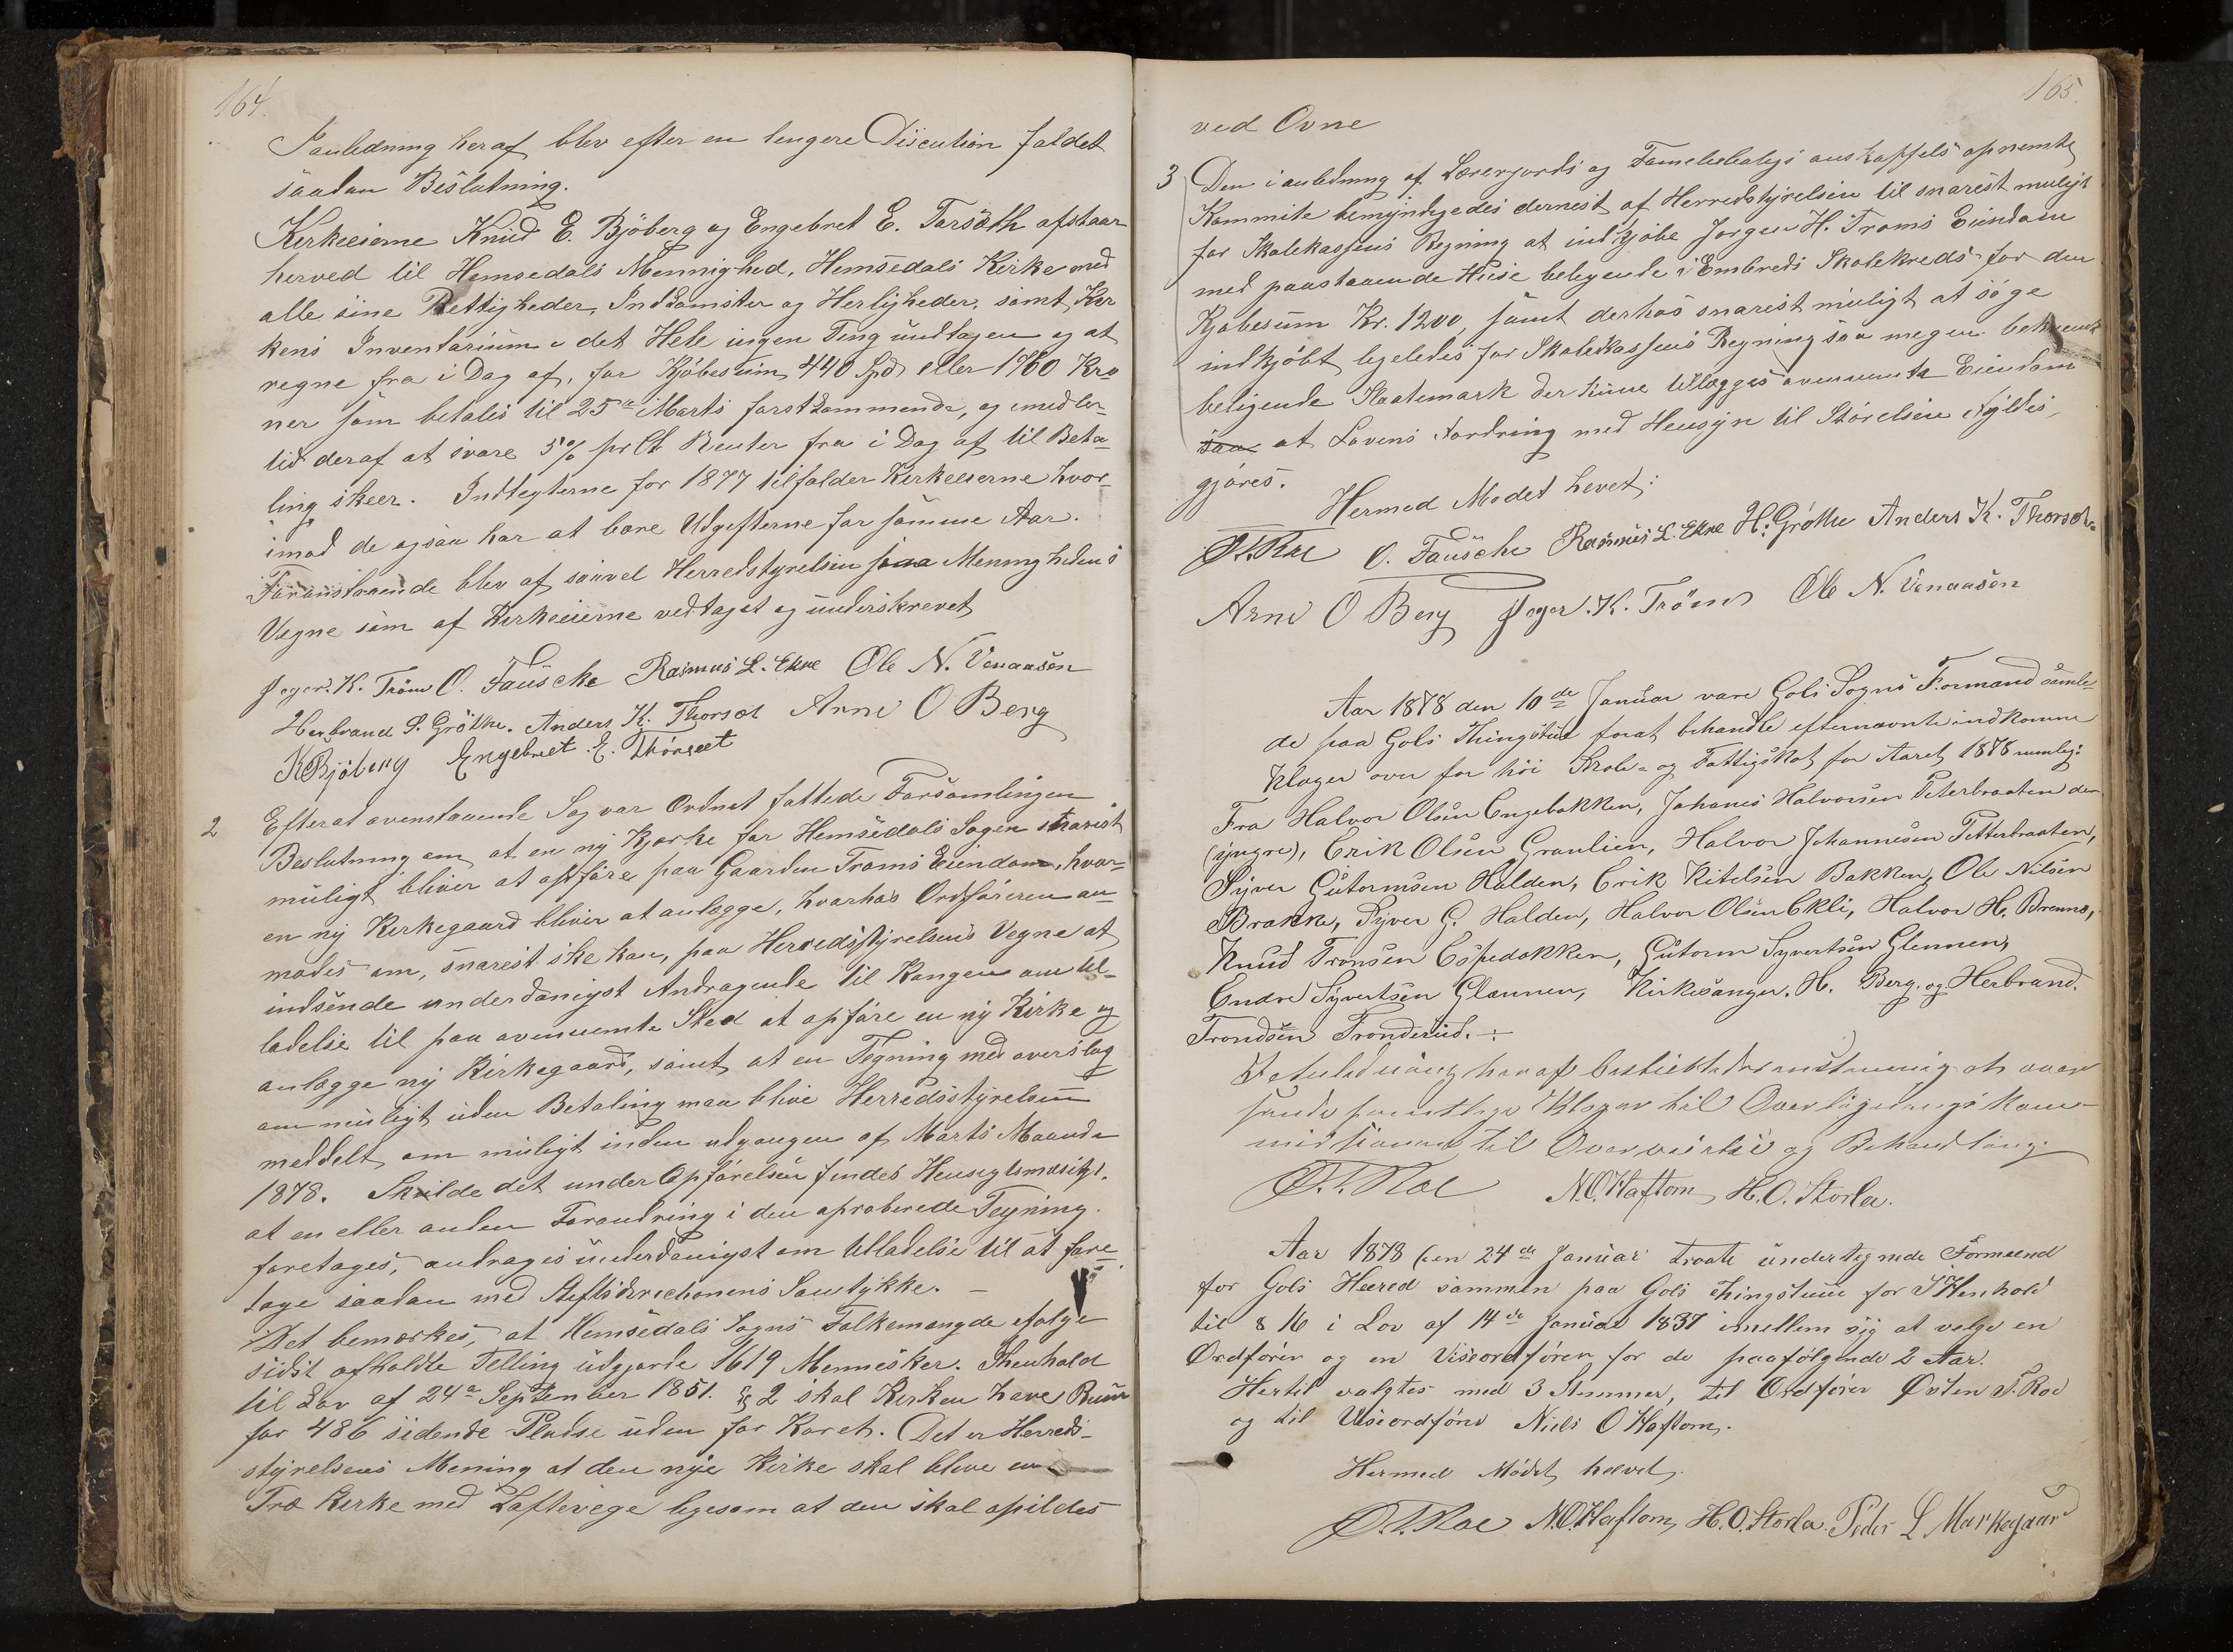 164.
I anledning heraf blev efter en lengere Discution faldet
saadan Beslutning.
Kirkeeierne Knud E. Bjöberg og Engebret E. Torsæth afstaar
herved til Hemsedals Mennighed, Hemsedals Kirke med
alle sine Rettigheder, Inddomster og Herligheder, samt Kir
kens Inventarium i det Hele ingen Ting undtagen og at
regne fra i Dag af, for Kjöbesum 440 Spd. eller 1760 Kro
ner som betales til 25de Marts forstkommende, og imidler-
tid deraf at svare 5% pr Ct Renter fra i Dag af til Beta
ling skeer. Indtegterne for 1877 tilfalder Kirkeeierne hvor-
imod de ogsaa har at bære Udgifterne for samme Aar.
Foranstaaende blev af saavel Herredstyrelsen paa Menninghedens
Vegne som af Kirkeeierne vedtaget og underskrevet
Jeger. K. Tröm O. Fausche Rasmus L. Ekre Ole N. Venaasen
Herbrand S. Gröthe. Anders K. Thorset Arne O Berg
K Bjöberg Engebret. E. Thorset
2 Efterat ovenstaaende Sag var Ordnet fattede Forsamlingen
Beslutning om, at en ny Kjærke for Hemsedals Sogn snarest
muligt bliver at opföre paa Gaarden Troms Eiendom, hvor-
en ny Kirkegaard bliver at anlægge, hvorhos Ordföreren an
modes om, snarest ske kan, paa Herredsstyrelsens Vegne at
indsende underdanigst Andragende til Kongen om til-
ladelse til paa ovennemte Sted at opföre en ny Kirke og
anlægge ny Kirkegaard, samt at en Tegning med overslag
om muligt uden Betaling maa blive Herredsstyrelsen
meddelt om muligt inden udgangen af Marts Maaned
1878. Skulde det under Opförelsen findes Hensigtsmæsigt,
at en eller anden Forandring i den aproberede Tegning
foretages, andrages underdanigst om tilladelse til at fore
tage saadan med Stiftsdirectionens Samtykke. –
Det bemærkes, at Hemsedals Sogns Folkemængde efölge
sidst afholdte Telling udgjorde 1619 Mennesker. Ihenhold
til Lov af 24de September 1851. § 2 skal Kirken have Rum
for 486 sidende Pladse uden for Koret. Det er Herreds-
styrelsens Mening at den nye Kirke skal blive en
Træ Kirke med Laftevege ligesom at den skal opildes
165.
ved Ovne
3 Den i anledning af Lærerjords og Familieboligs anskaffels opnemte
Kommite bemyndigedes dernest af Herredstyrelsen til snarest muligt
for Skolekassens Regning at indkjöbe Jorgen H. Troms Eiendom
med paastaaende Huse beliggende i Embreds Skolekreds for den
Kjöbesum Kr. 1200, samt derhos snarest muligt at söge
indkjöbt ligeledes for Skolekassens Regning saa megen bekvemt
beligende Slaatemark der kunne tillægges ovennemte Eiendom
saa at Lovens Fordring med Hensyn til Störelsen Fyldes-
gjöres.
Hermed Mödet hevet:
O.T.Roe O. Fausche Rasmus L. Ekre H. Gröthe Anders K. Thorset
Arne O Berg Jeger. K. Tröm Ole N. Venaasen
Aar 1878 den 10de Januar vare Gols Sogns Formænd samle-
de paa Gols Thingstue forat behandle efternævnte indkomne
Klager over for höi Skole- og Fattigskat for Aaret 1878 nemlig:
Fra Halvor Olsen Engebakken, Johanes Halvorsen Peterbraaten den
(yngre), Erik Olsen Granlien, Halvor Johannesen Petterbraaten,
Syver Guttormsen Halden, Erik Kitelsen Bakken, Ole Nilsen
Brakke, Syver G. Halden, Halvor Olsen Ekli, Halvor H. Brenno,
Knud Tronsen Espedokken, Guttorm Syvertsen Glennen,
Endre Syvertsen Glennen, Kirkesanger. H. Berg. og Herbrand.
Trondsen Tronderud. ÷
I Anledning heraf besluttedes enstemmig at over
sende samtlige Klager til Overligningskom-
missionen til Overveielse og Behandling.
O.T.Roe N.O.Haftorn, H.O. Storla.
Aar 1878 den 24de Januar traate undertegnede Formænd
for Gols Heered sammen paa Gols Thingstue for I Henhold
til § 16 i Lov af 14de Januar 1837 imellem sig at velge en
Ordförer og en Viseordförer for de paafölgende 2 Aar.
Hertil valgtes med 3 Stemmer, til Ordförer Østen T. Roe
og til Viseordförer Niels O Haftorn.
Hermed Mödet hævet.
O.T.Roe N.O.Haftorn, H.O. Storla. Peder L Markegaar